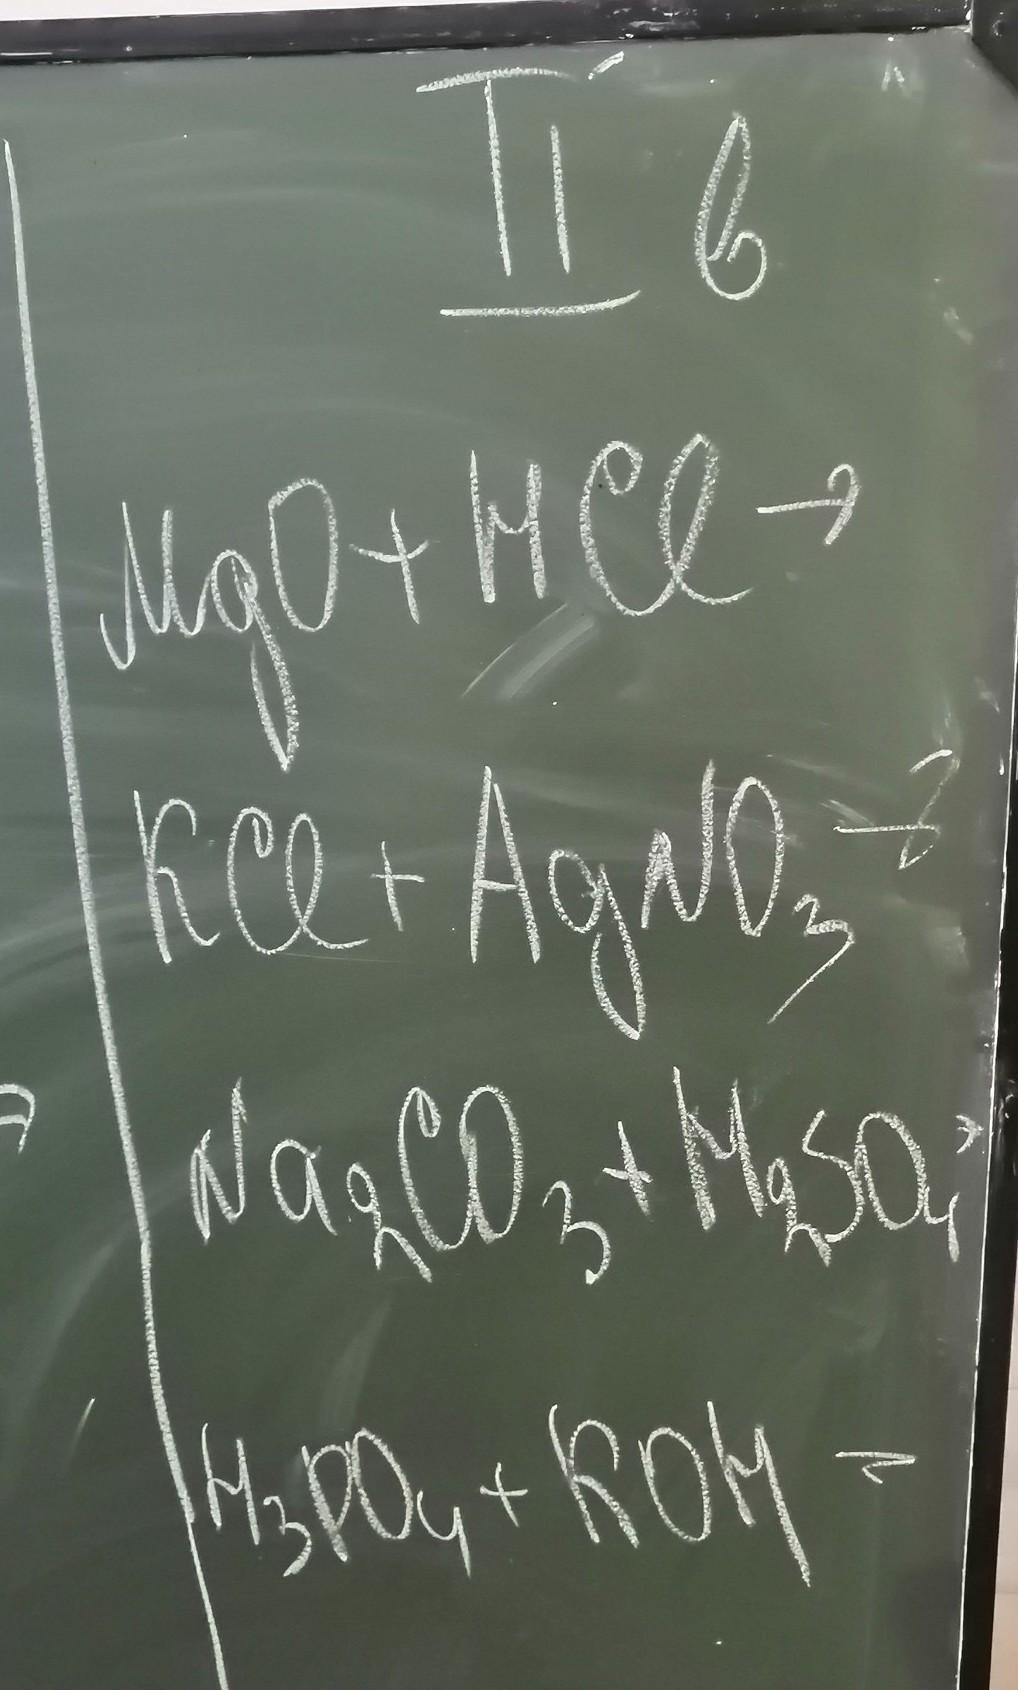 II в
MgO + HCl →
KCl + AgNO₃ →
Na₂CO₃ + MgSO₄ →
H₃PO₄ + KOH →